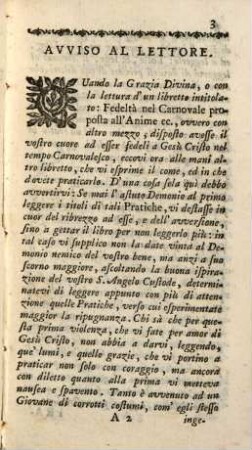 3
AVVISO AL LETTORE.
QUando la Grazia Divina, o con
la lettura d'un libretto intitola-
to: Fedeltà nel Carnovale pro-
posta all'Anime ec., ovvero con
altro mezzo, disposto avesse il
vostro cuore ad esser fedeli a Gesù Cristo nel
tempo Carnovalesco, eccovi ora alle mani al-
tro libretto, che vi esprime il come, ed in che
dovete praticarlo. D'una cosa sola quì debbo
avvertirvi: Se mai l'astuto Demonio al primo
leggere i titoli di tali Pratiche, vi destasse in
cuor del ribrezzo ad esse, e dell'avversione,
sino a gettar il libro per non leggerlo più: in
tal caso vi supplico non la date vinta al De-
monio nemico del vostro bene, ma anzi a suo
scorno maggiore, ascoltando la buona ispira-
zione del vostro S. Angelo Custode, determi-
natevi di leggere appunto con più di atten-
zione quelle Pratiche, verso cui esperimentate
maggior la ripugnanza. Chi sà che per que-
sta prima violenza, che vi fate per amor di
Gesù Cristo, non abbia a darvi, leggendo,
que' lumi, e quelle grazie, che vi portino a
praticar non solo con coraggio, ma ancora
con diletto quanto alla prima vi metteva
nausea e spavento. Tanto è avvenuto ad un
Giovane di corrotti costumi, com' egli stesso
A 2 inge-